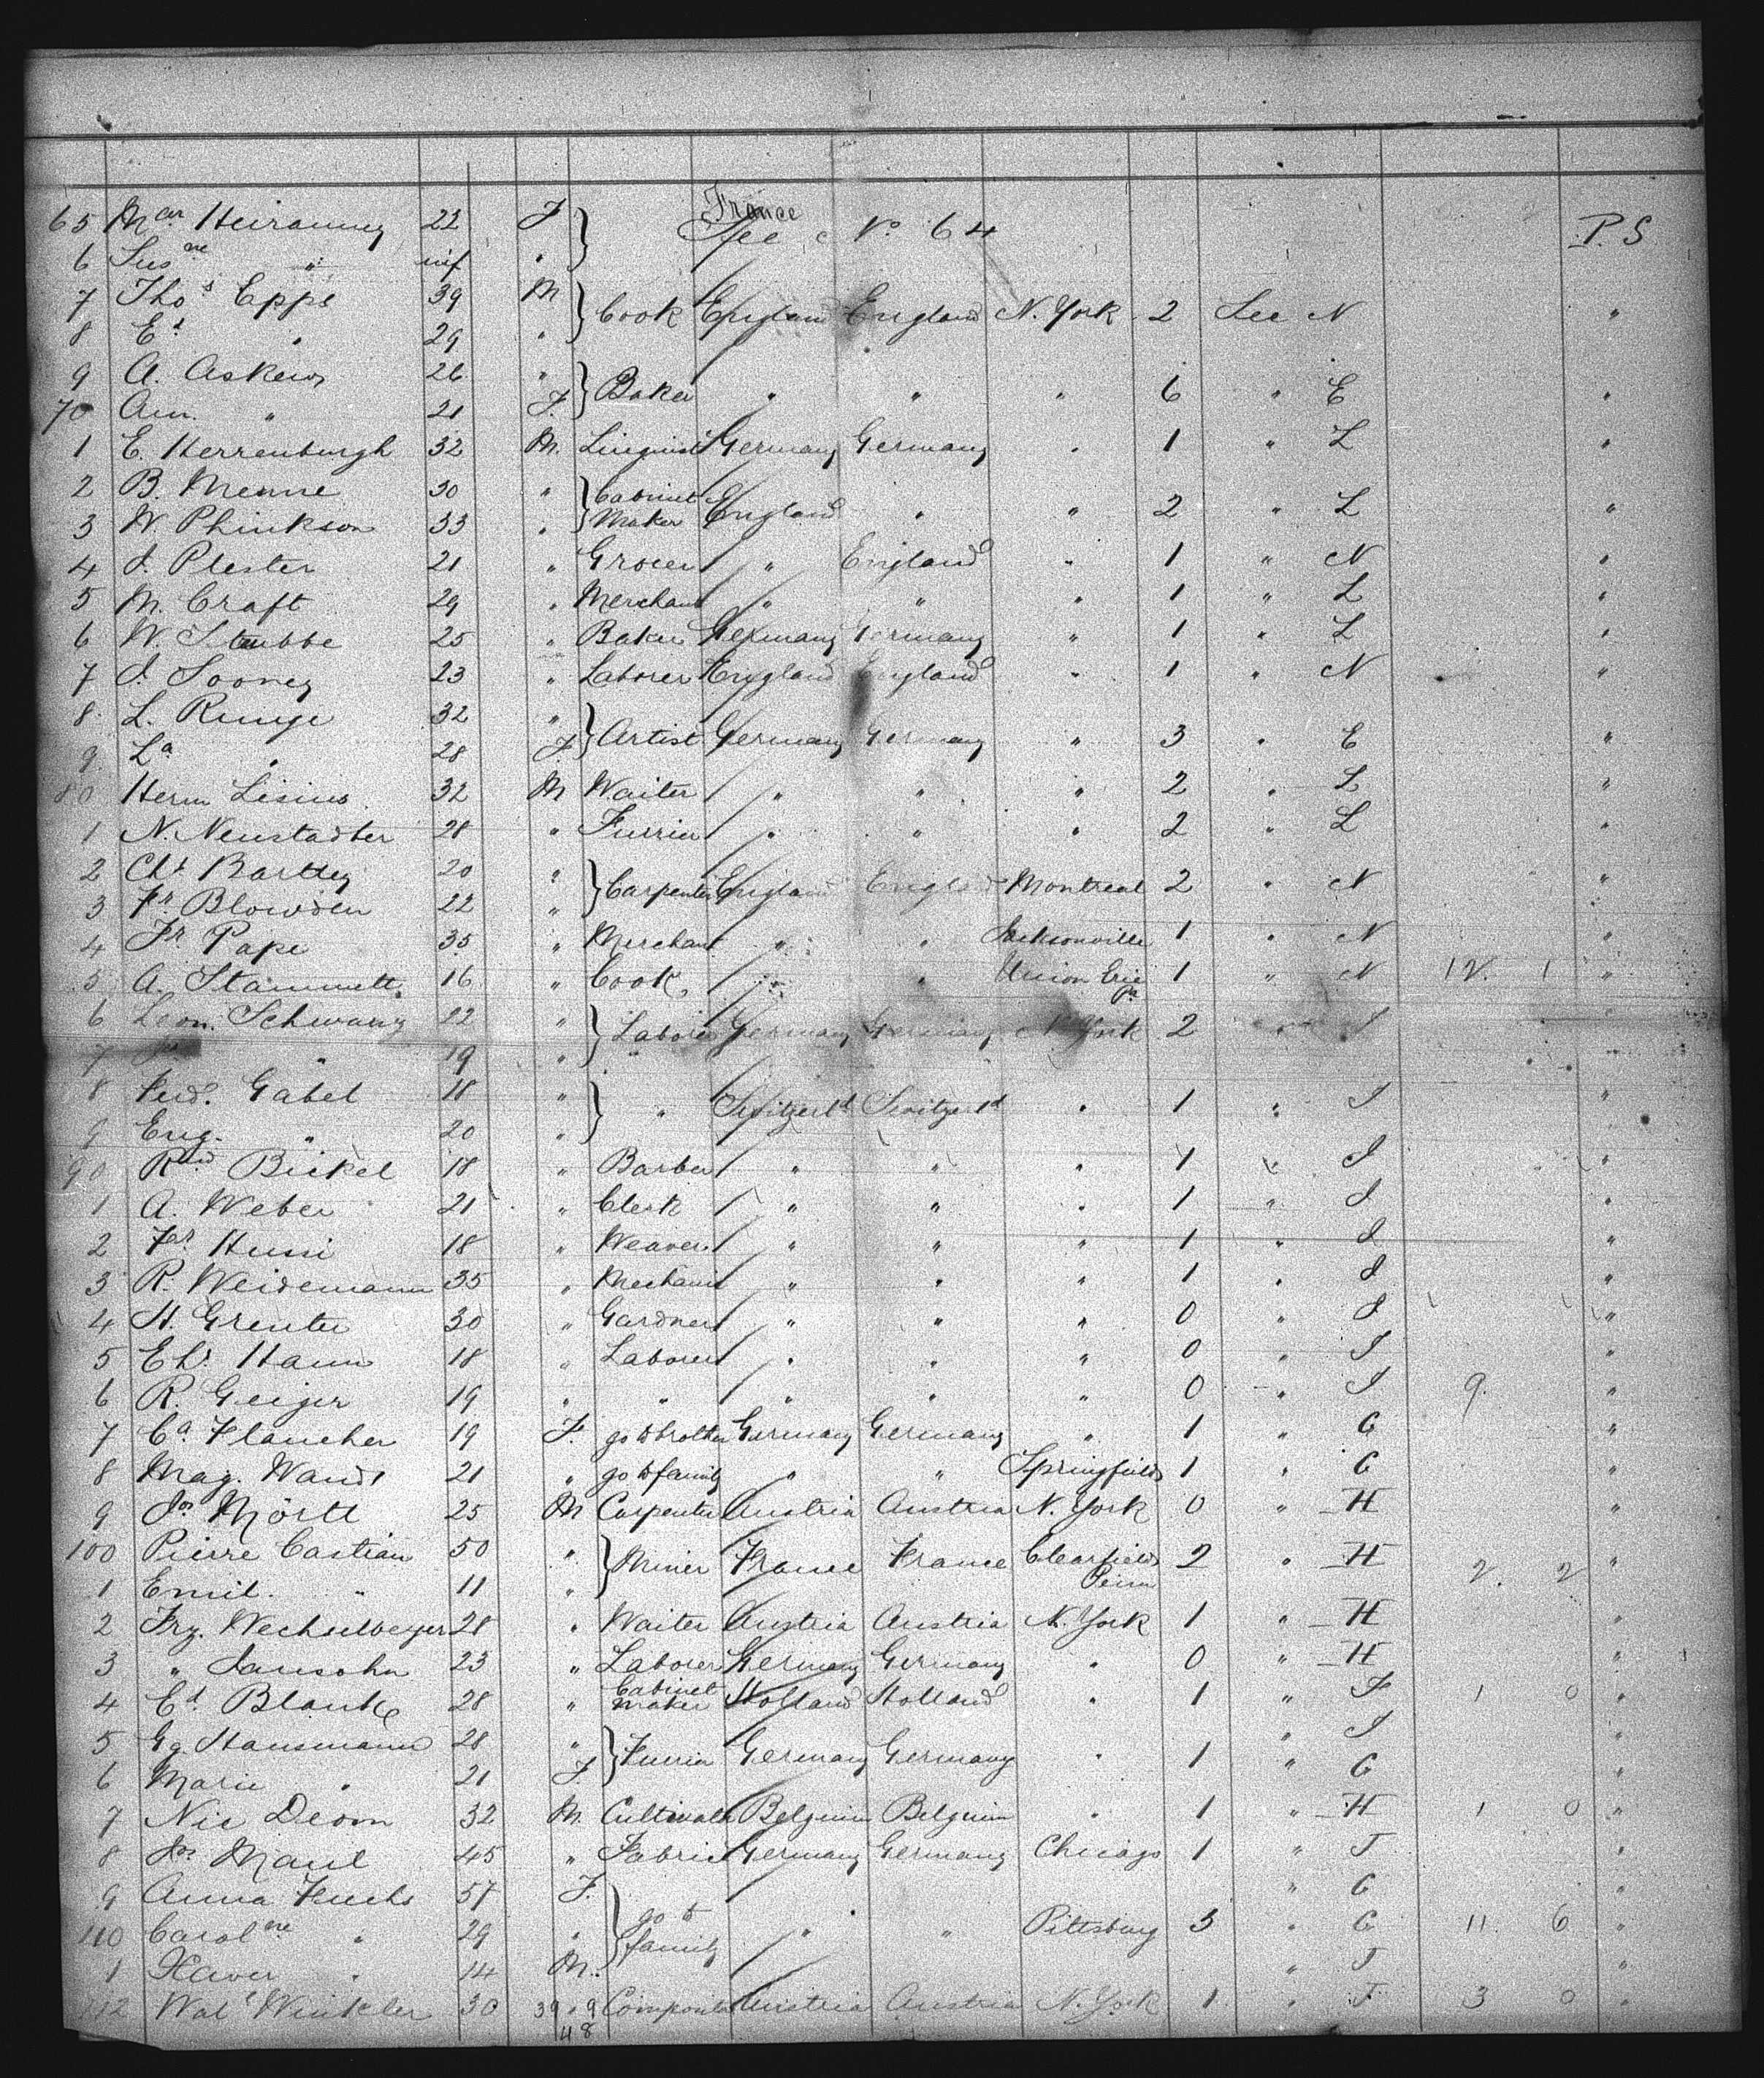 France
65 Mar Heiranny 22 F } See No 64 P.S
6 Susne " inf "
7 Thos Epps 39 M } Cook England England N. York 2 See N "
8 Ed " 29 "
9 A. Askew 26 " } Baker " " " 6 " E "
70 Am. " 21 F.
1 E. Herrenburgh 32 M. Linguist Germany Germany " 1 " L "
2 B. Menne 30 " } Cabinet Maker England " " 2 " L "
3 W Phinkson 33 "
4 J. Plester 21 " Grocer " England " 1 " N "
5 M. Craft 29 " Merchant " " " 1 " L "
6 W. Stubbe 25 " Baker Germany Germany " 1 " L "
7 J. Sooney 23 " Laborer England England " 1 " N "
8. L. Runge 32 " } Artist Germany Germany " 3 " E "
9. La " 28 F.
80 Herm Lisius 32 M Waiter " " " 2 " L "
1 N. Neustadter 28 " Furrier " " " 2 " L "
2 Chs Bartley 20 " } Carpenter England Engld Montreal 2 " N "
3 Fr. Blowden 22 "
4 Fr Pape 35 " Merchant " " Jacksonville 1 " N "
5 A. Stammett 16 " Cook " " Union Erie Pa 1 " N 12. 1 "
6 Leon. Schwarz 22 " } Laborer Germany Germany N York 2 "
7 " 19 "
8 Ferd. Gabel 18 " } " Switzerld Switzerld " 1 " S "
9 Eug. " 20 "
90 Rud Bickel 18 " Barber " " " 1 " S "
1 A. Weber 21 " Clerk " " " 1 " S "
2 Hussi 18 " Weaver " " " 1 " S "
3 R. Weidemann 35 " Mechanic " " " 1 " S "
4 H. Greuter 30 " Gardner " " " 0 " S "
5 Hann 18 " Laborer " " " 0 " S "
6 R. Geiger 19 " " " " " 0 " S 9. "
7 Ca Flaucher 19 F. go to brother Germany Germany " 1 " G "
8 Mag. Wandt 21 " go to family " " Springfield 1 " G "
9 Js. Mörtl 25 M Carpenter Austria Austria N. York 0 " H "
100 Pierre Castian 50 " } Miner France France Clearfield Penn 2 " H 2. 2 "
1 Emil. " 11 "
2 Frz. Wechselberger 28 " Waiter Austria Austria N. York 1 " H "
3 " Jansohn 23 " Laborer Germany Germany " 0 " H "
4 Ed Blanke 28 " Cabinet maker Holland Holland " 1 " F 1 0 "
5 Gg. Hausmann 28 " } Furrier Germany Germany " 1 " S "
6 Marie " 21 F. " G "
7 Nic Deom 32 M. Belgium Belgium " 1 " H 1 0 "
8 Js. Maul 45 " Fabric Germany Germany Chicago 1 " T "
9 Anna Fuchs 57 F. } go to family " " Pittsburg 3 " G 11. 6 "
110 Carolne " 29 " " G "
1 Xaver " 14 M. " T "
112 Wal Winkler 30 39 " 9 Austria Austria N. York 1 " T 3 0 "
48